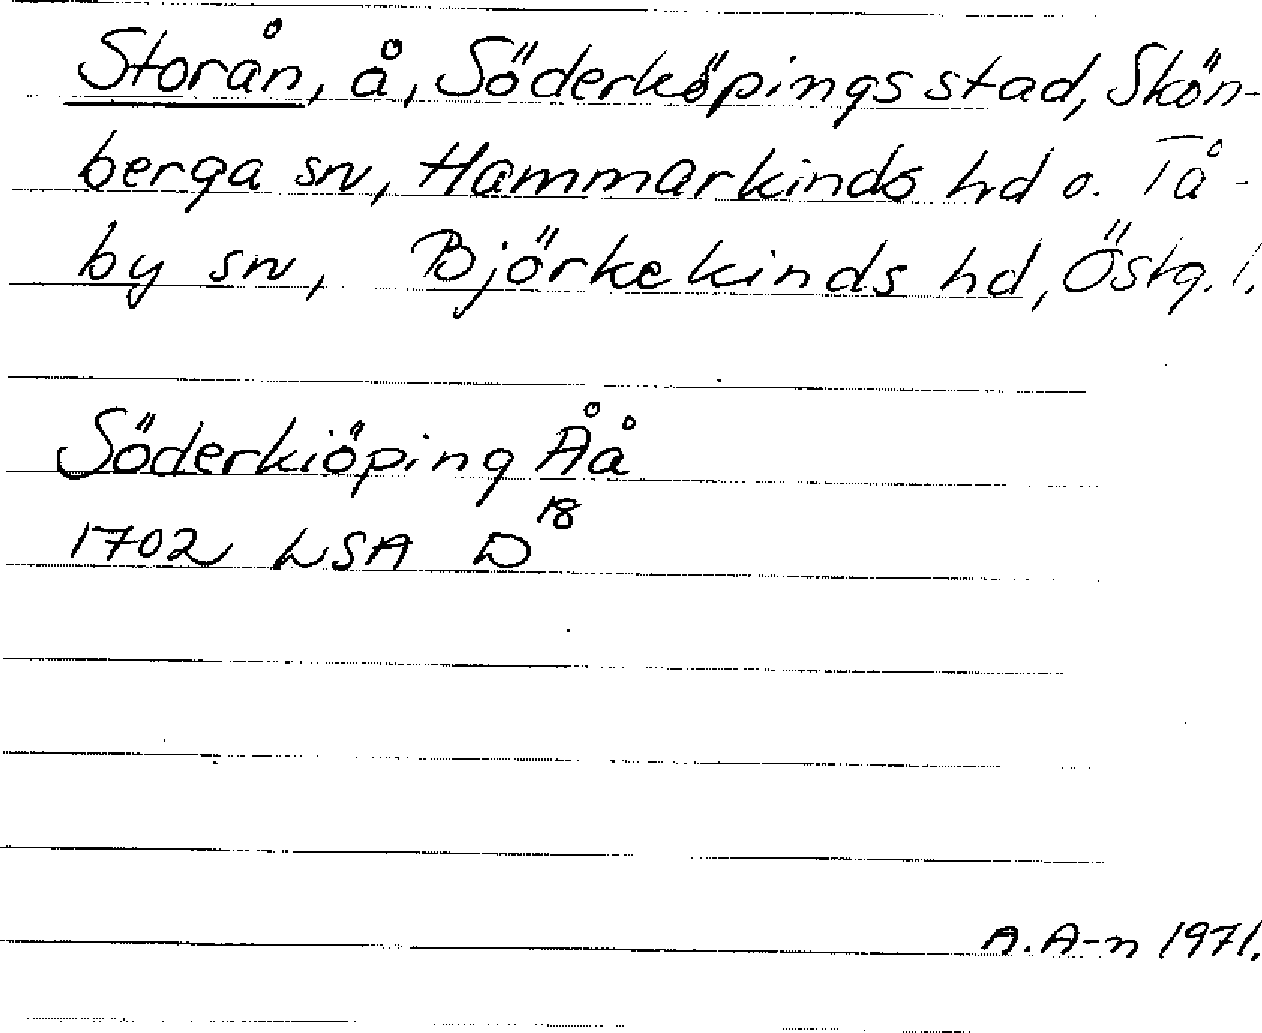 Storån, å, Söderköpings stad, Skön-
berga sn, Hammarkinds hd o. Tå-
by sn, Björkekinds hd, Östg. l.
Söderkiöping Åå
1702 LSA D18
A. A-n 1971.